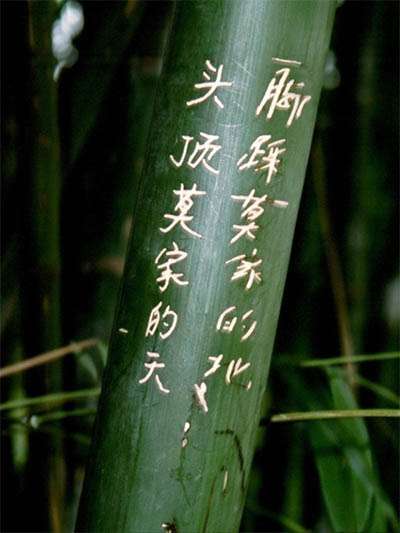 脚踩莫家的地
头顶莫家的天